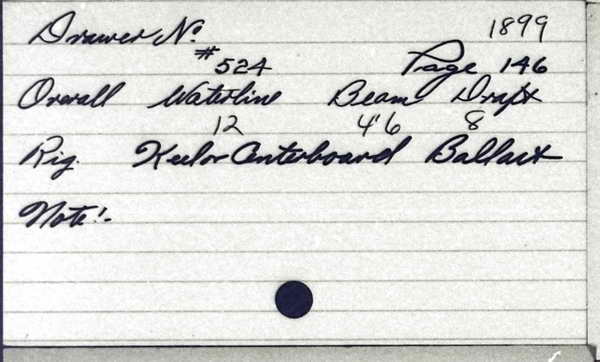 Drawer No. 1899
#524 Page 146
Overall Waterline Beam Draft
12 4'6 8
Rig. Keel or Centerboard Ballast
Note:-